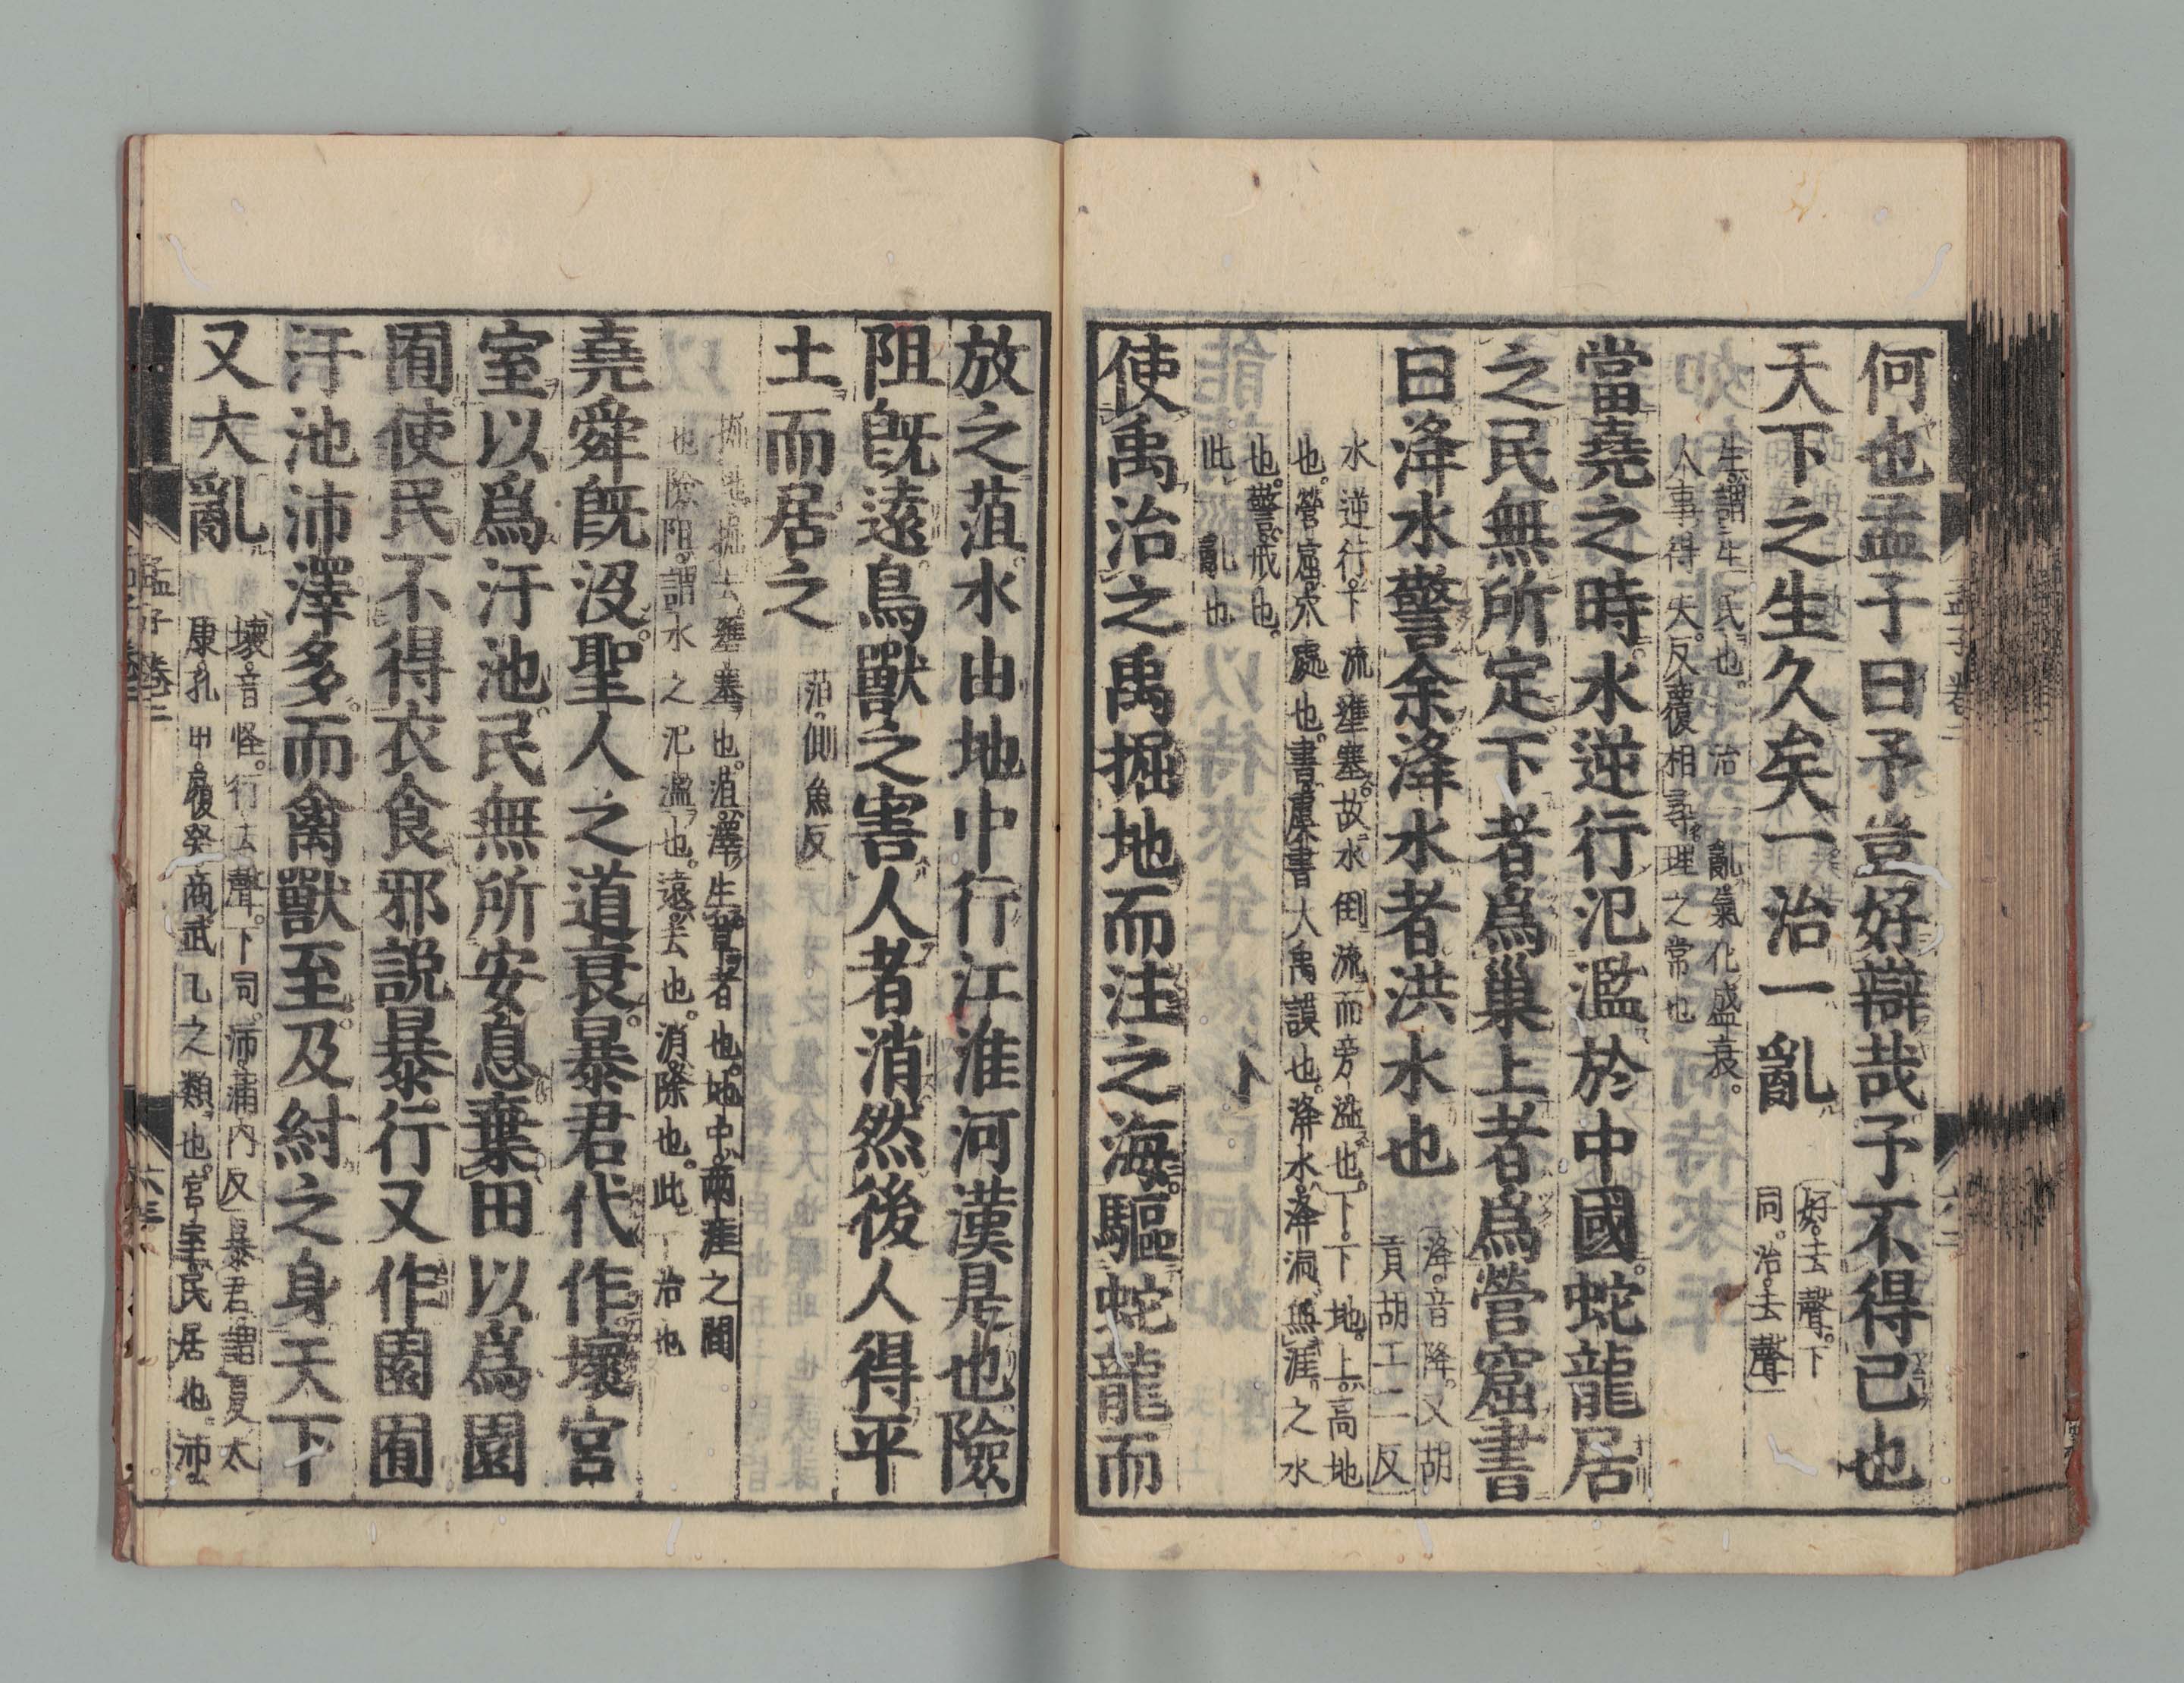 何也孟子曰予豈好辯哉予不得已也
天下之生久矣一治一亂
好去聲下
同治去聲
生謂生民也治亂氣化盛衰
人事得失反覆相尋理之常也
當堯之時水逆行氾濫於中國蛇龍居
之民無所定下者爲巢上者爲營窟書
曰洚水警余洚水者洪水也
洚音降又胡
貢胡工二反
水逆行下流壅塞故水倒流而旁溢也下下地上高地
也營窟穴處也書虞書大禹謨也洚水洚洞無涯之水
也警戒也
此一亂也
使禹治之禹掘地而注之海驅蛇龍而
放之菹水由地中行江淮河漢是也險
阻旣遠鳥獸之害人者消然後人得平
土而居之
菹側魚反
掘地掘去壅塞也菹澤生草者也地中兩涯之間
也險阻謂水之氾濫也遠去也消除也此一治也
堯舜旣沒聖人之道衰暴君代作壞宮
室以爲汙池民無所安息棄田以爲園
囿使民不得衣食邪說暴行又作園囿
汙池沛澤多而禽獸至及紂之身天下
又大亂
壞音怪行去聲下同沛蒲內反暴君謂夏太
康孔甲履癸商武乙之類也宮室民居也沛
孟子卷三
六十三